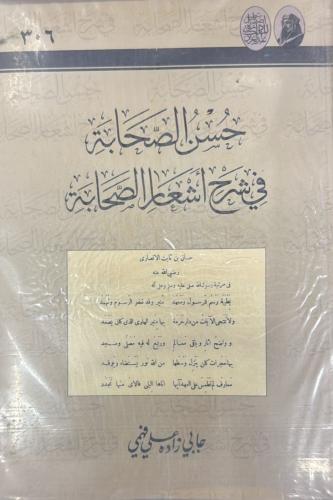 ٣٠٦
حُسْنُ الصَّحَابَة
فِي شَرْحِ أَشْعَارِ الصَّحَابَة
حسان بن ثابت الأنصاري
رضي الله عنه
في مرثية رسول الله صلى عليه وسلم
بطيبة رسم للرسول ومعهد
منير وقد تعفو الرسوم وتهمد
ولا تنمحي الآيات من دار حرمة
بها منبر الهادي الذي كان يصعد
وواضح آثار وباقي معالم
وربع له فيه مصلى ومسجد
بها حجرات كان ينزل وسطها
من الله نور يستضاء ويوقد
معارف لم تطمس على العهد آيها
أتاها البلى فالآي منها تجدد
جابي زاده علي فهمي